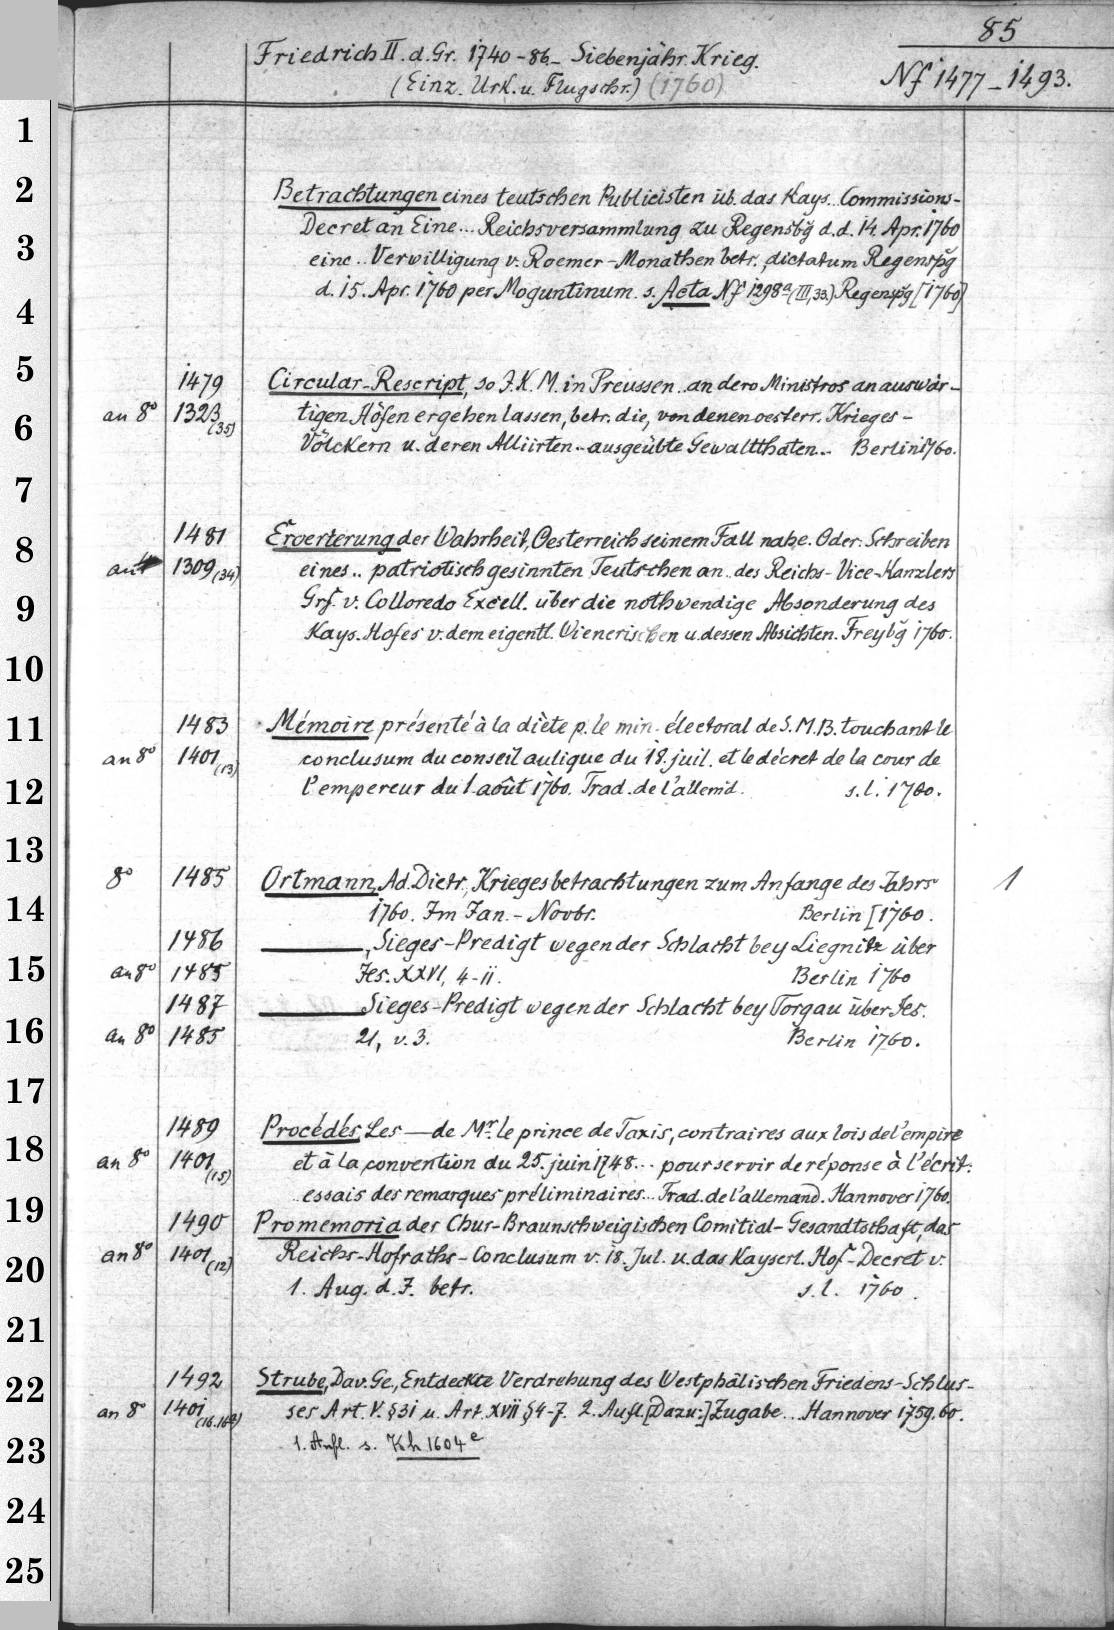 85
Friedrich II. d. Gr. 1740-86_ Siebenjähr. Krieg.
(Einz. Urk. u. Flugschr.) (1760)
Nf 1477_1493.
1
2
Betrachtungen eines teutschen Publicisten üb. das Kays.. Commissions-
Decret an Eine... Reichsversammlung zu Regensbg d.d. 14. Apr. 1760
3
eine .. Verwilligung v. Roemer-Monathen betr., dictatum Regenspg
d. 15. Apr. 1760 per Moguntinum. s. Acta Nf 1298a (III,33) Regenspg [1760]
4
5
1479 Circular-Rescript, so I. K. M. in Preussen .. an dero Ministros an auswär-
an 8° 1323 (35) tigen Höfen ergehen lassen, betr. die, von denen oesterr. Krieges-
6
Völckern u. deren Alliirten .. ausgeübte Gewaltthaten.. Berlin 1760.
7
1481 Eroerterung der Wahrheit, Oesterreich seinem Fall nahe. Oder: Schreiben
8
an 4° 1309 (34) eines .. patriotisch gesinnten Teutschen an .. des Reichs-Vice-Kanzlers
9
Grf. v. Colloredo Excell. über die nothwendige Absonderung des
Kays. Hofes v. dem eigentl. Wienerischen u. dessen Absichten. Freybg 1760.
10
11
1483 Mémoire présenté à la diète p. le min. électoral de S. M. B. touchant le
an 8° 1401 (13) conclusum du conseil aulique du 18. juil. et le décret de la cour de
12
l'empereur du 1 août 1760. Trad. de l'allemd. s. l. 1760.
13
8° 1485 Ortmann, Ad. Dietr., Kriegesbetrachtungen zum Anfange des Jahrs 1
14
1760. Im Jan. - Novbr. Berlin [1760.
1486 ———, Sieges-Predigt wegen der Schlacht bey Liegnitz über
15
an 8° 1485 Jes. XXVI, 4-11. Berlin 1760
1487 ——— Sieges-Predigt wegen der Schlacht bey Torgau über Jes.
16
an 8° 1485 21, v. 3. Berlin 1760.
17
1489 Procédés, Les — de Mr. le prince de Taxis, contraires aux lois de l'empire
18
an 8° 1401 (15) et à la convention du 25. juin 1748... pour servir de réponse à l'écrit:
essais des remarques préliminaires... Trad. de l'allemand. Hannover 1760.
19
1490 Promemoria der Chur-Braunschweigischen Comitial-Gesandtschaft, das
an 8° 1401 (12) Reichs-Hofraths-Conclusum v. 18. Jul. u. das Kayserl. Hof-Decret v.
20
1. Aug. d. J. betr. s. l. 1760.
21
22
1492 Strube, Dav. Ge., Entdeckte Verdrehung des Westphälischen Friedens-Schlus-
an 8° 1401 (16.16a) ses Art. V. § 31 u. Art. XVII § 4-7. 2. Aufl. [Dazu:] Zugabe... Hannover 1759.60.
23
1. Aufl. s. Kh 1604e
24
25